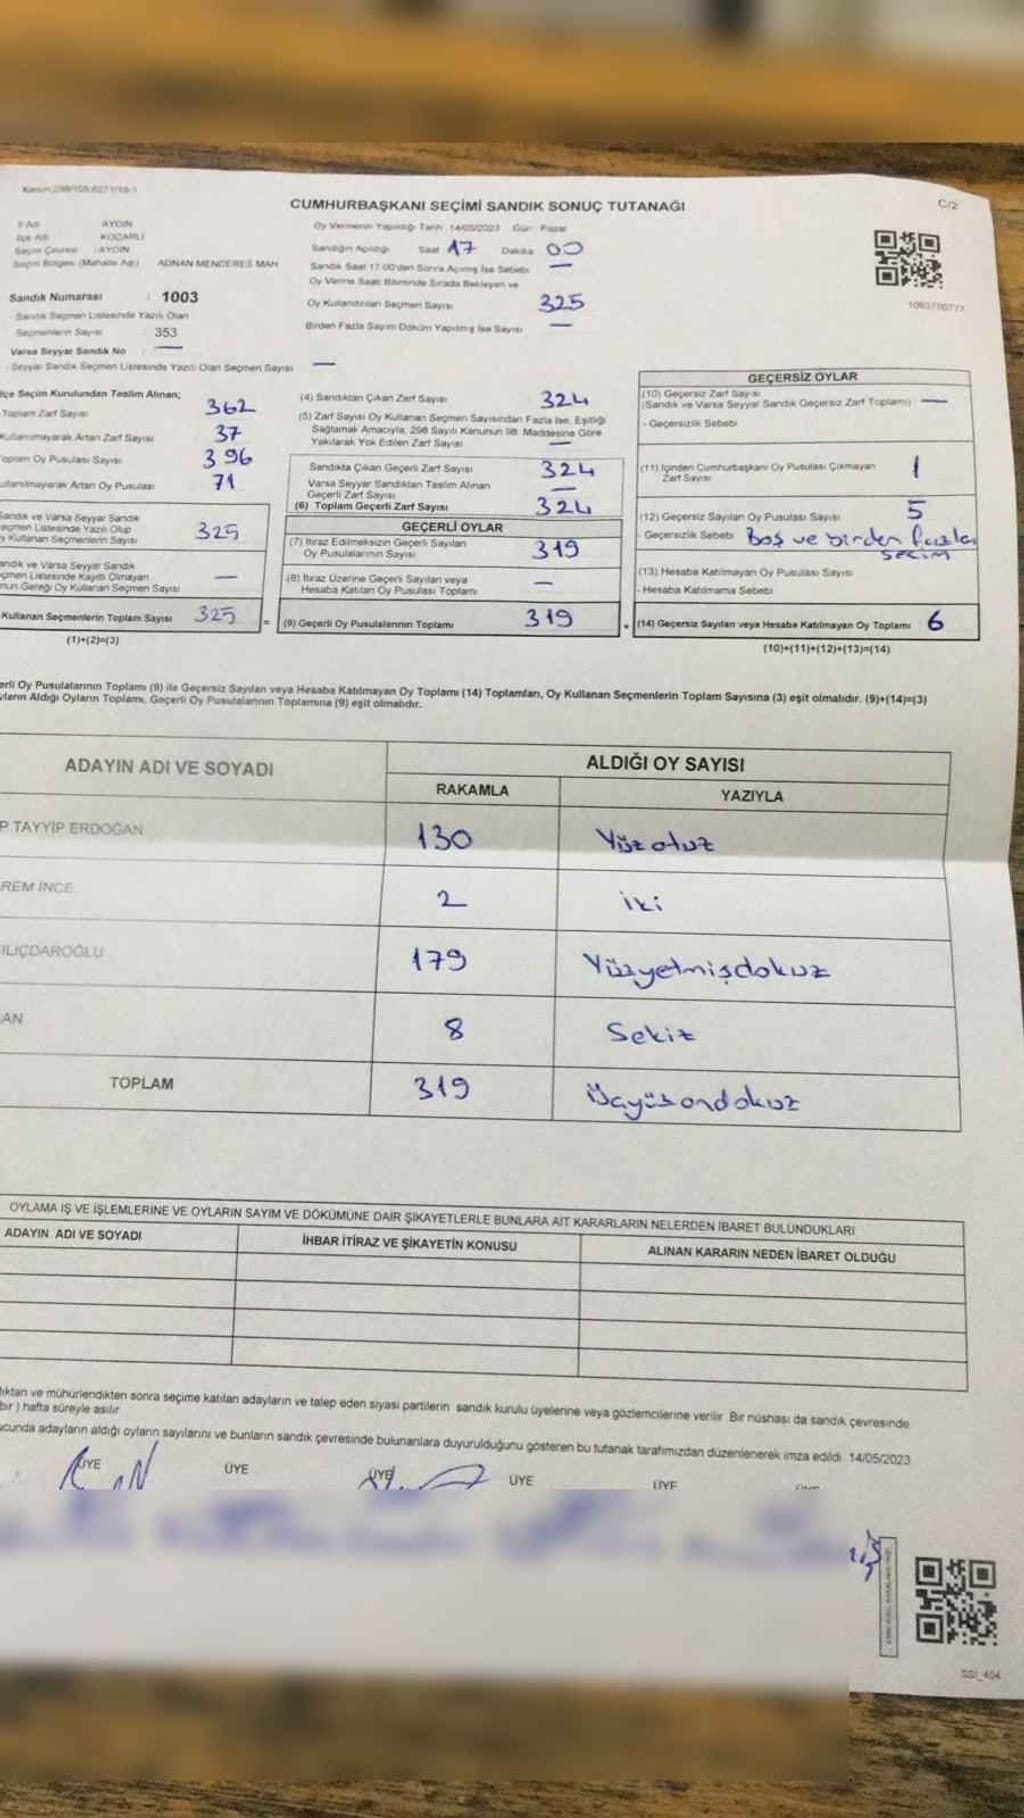 CUMHURBAŞKANI SEÇİMİ SANDIK SONUÇ TUTANAĞI
C/2
AYDIN
KOÇARLI
AYDIN
ADNAN MENDERES MAH
Oy Vermenin Yapıldığı Tarih 14/05/2023 Gün Pazar
Sandığın Açıldığı Saat 17 Dakika 00
Sandık Saat 17.00'den Sonra Açılmış İse Sebebi —
Oy Verme Saati Bitiminde Sırada Bekleyen ve
Oy Kullandırılan Seçmen Sayısı 325
Birden Fazla Sayım Döküm Yapılmış İse Sayısı —
Sandık Numarası : 1003
Sandık Seçmen Listesinde Yazılı Olan
Seçmenlerin Sayısı : 353
Varsa Seyyar Sandık No : —
Seyyar Sandık Seçmen Listesinde Yazılı Olan Seçmen Sayısı —
1093700777
çe Seçim Kurulundan Teslim Alınan;
Toplam Zarf Sayısı 362
Kullanılmayarak Artan Zarf Sayısı 37
oplam Oy Pusulası Sayısı 396
ullanılmayarak Artan Oy Pusulası 71
Sandık ve Varsa Seyyar Sandık
eçmen Listesinde Yazılı Olup
y Kullanan Seçmenlerin Sayısı 325
andık ve Varsa Seyyar Sandık
çmen Listesinde Kayıtlı Olmayan
nun Gereği Oy Kullanan Seçmen Sayısı —
Kullanan Seçmenlerin Toplam Sayısı 325
(1)+(2)=(3)
(4) Sandıktan Çıkan Zarf Sayısı 324
(5) Zarf Sayısı Oy Kullanan Seçmen Sayısından Fazla İse, Eşitliği
Sağlamak Amacıyla, 298 Sayılı Kanunun 98. Maddesine Göre
Yakılarak Yok Edilen Zarf Sayısı —
Sandıkta Çıkan Geçerli Zarf Sayısı 324
Varsa Seyyar Sandıktan Teslim Alınan
Geçerli Zarf Sayısı —
(6) Toplam Geçerli Zarf Sayısı 324
GEÇERLİ OYLAR
(7) İtiraz Edilmeksizin Geçerli Sayılan
Oy Pusulalarının Sayısı 319
(8) İtiraz Üzerine Geçerli Sayılan veya
Hesaba Katılan Oy Pusulası Toplamı —
= (9) Geçerli Oy Pusulalarının Toplamı 319
GEÇERSİZ OYLAR
(10) Geçersiz Zarf Sayısı
(Sandık ve Varsa Seyyar Sandık Geçersiz Zarf Toplamı) —
- Geçersizlik Sebebi
(11) İçinden Cumhurbaşkanı Oy Pusulası Çıkmayan
Zarf Sayısı 1
(12) Geçersiz Sayılan Oy Pusulası Sayısı 5
- Geçersizlik Sebebi Boş ve birden fazla
seçim
(13) Hesaba Katılmayan Oy Pusulası Sayısı
- Hesaba Katılmama Sebebi
+ (14) Geçersiz Sayılan veya Hesaba Katılmayan Oy Toplamı 6
(10)+(11)+(12)+(13)=(14)
erli Oy Pusulalarının Toplamı (9) ile Geçersiz Sayılan veya Hesaba Katılmayan Oy Toplamı (14) Toplamları, Oy Kullanan Seçmenlerin Toplam Sayısına (3) eşit olmalıdır. (9)+(14)=(3)
yların Aldığı Oyların Toplamı, Geçerli Oy Pusulalarının Toplamına (9) eşit olmalıdır.
ADAYIN ADI VE SOYADI
ALDIĞI OY SAYISI
RAKAMLA YAZIYLA
P TAYYİP ERDOĞAN 130 Yüz otuz
REM İNCE 2 iki
ILIÇDAROĞLU 179 Yüzyetmişdokuz
AN 8 Sekiz
TOPLAM 319 Üçyüzondokuz
OYLAMA İŞ VE İŞLEMLERİNE VE OYLARIN SAYIM VE DÖKÜMÜNE DAİR ŞİKAYETLERLE BUNLARA AİT KARARLARIN NELERDEN İBARET BULUNDUKLARI
ADAYIN ADI VE SOYADI İHBAR İTİRAZ VE ŞİKAYETİN KONUSU ALINAN KARARIN NEDEN İBARET OLDUĞU
ıktan ve mühürlendikten sonra seçime katılan adayların ve talep eden siyasi partilerin sandık kurulu üyelerine veya gözlemcilerine verilir. Bir nüshası da sandık çevresinde
bir ) hafta süreyle asılır
ucunda adayların aldığı oyların sayılarını ve bunların sandık çevresinde bulunanlara duyurulduğunu gösteren bu tutanak tarafımızdan düzenlenerek imza edildi. 14/05/2023
ÜYE ÜYE ÜYE ÜYE ÜYE
SSI_404